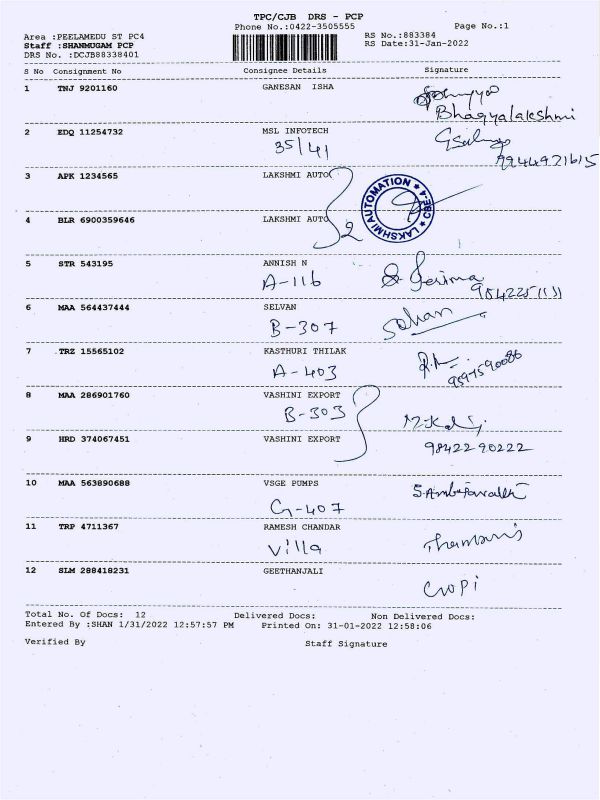 TPC/CJB DRS - PCP
Phone No.:0422-3505555 Page No.:1
Area :PEELAMEDU ST PC4 RS No.:883384
Staff :SHANMUGAM PCP RS Date:31-Jan-2022
DRS No. :DCJB88338401
S No Consignment No Consignee Details Signature
1 TNJ 9201160 GANESAN ISHA
Bhagyalakshmi
2 EDQ 11254732 MSL INFOTECH
35/41
9944921615
3 APK 1234565 LAKSHMI AUTO
LAKSHMI AUTOMATION CBE-4
4 BLR 6900359646 LAKSHMI AUTO
2
5 STR 543195 ANNISH N
A-116
6 MAA 564437444 SELVAN
B-307 Sohan
7 TRZ 15565102 KASTHURI THILAK
A-403
8 MAA 286901760 VASHINI EXPORT
B-303
9 HRD 374067451 VASHINI EXPORT
98422 90222
10 MAA 563890688 VSGE PUMPS
G-407
11 TRP 4711367 RAMESH CHANDAR
Villa
12 SLM 288418231 GEETHANJALI
Gopi
Total No. Of Docs: 12 Delivered Docs: Non Delivered Docs:
Entered By :SHAN 1/31/2022 12:57:57 PM Printed On: 31-01-2022 12:58:06
Verified By Staff Signature